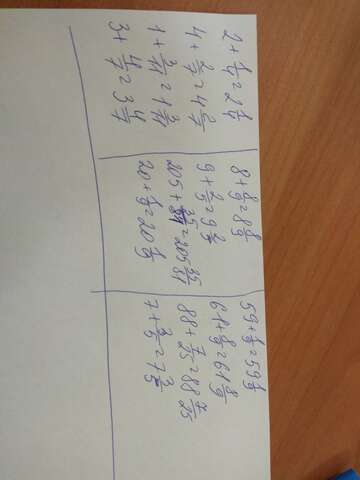 2 + 1/4 = 2 1/4
4 + 2/7 = 4 2/7
1 + 3/11 = 1 3/11
3 + 4/7 = 3 4/7
8 + 8/9 = 8 8/9
9 + 2/5 = 9 2/5
205 + 35/84 = 205 35/84
20 + 1/9 = 20 1/9
59 + 1/2 = 59 1/2
61 + 8/9 = 61 8/9
88 + 7/25 = 88 7/25
7 + 3/5 = 7 3/5